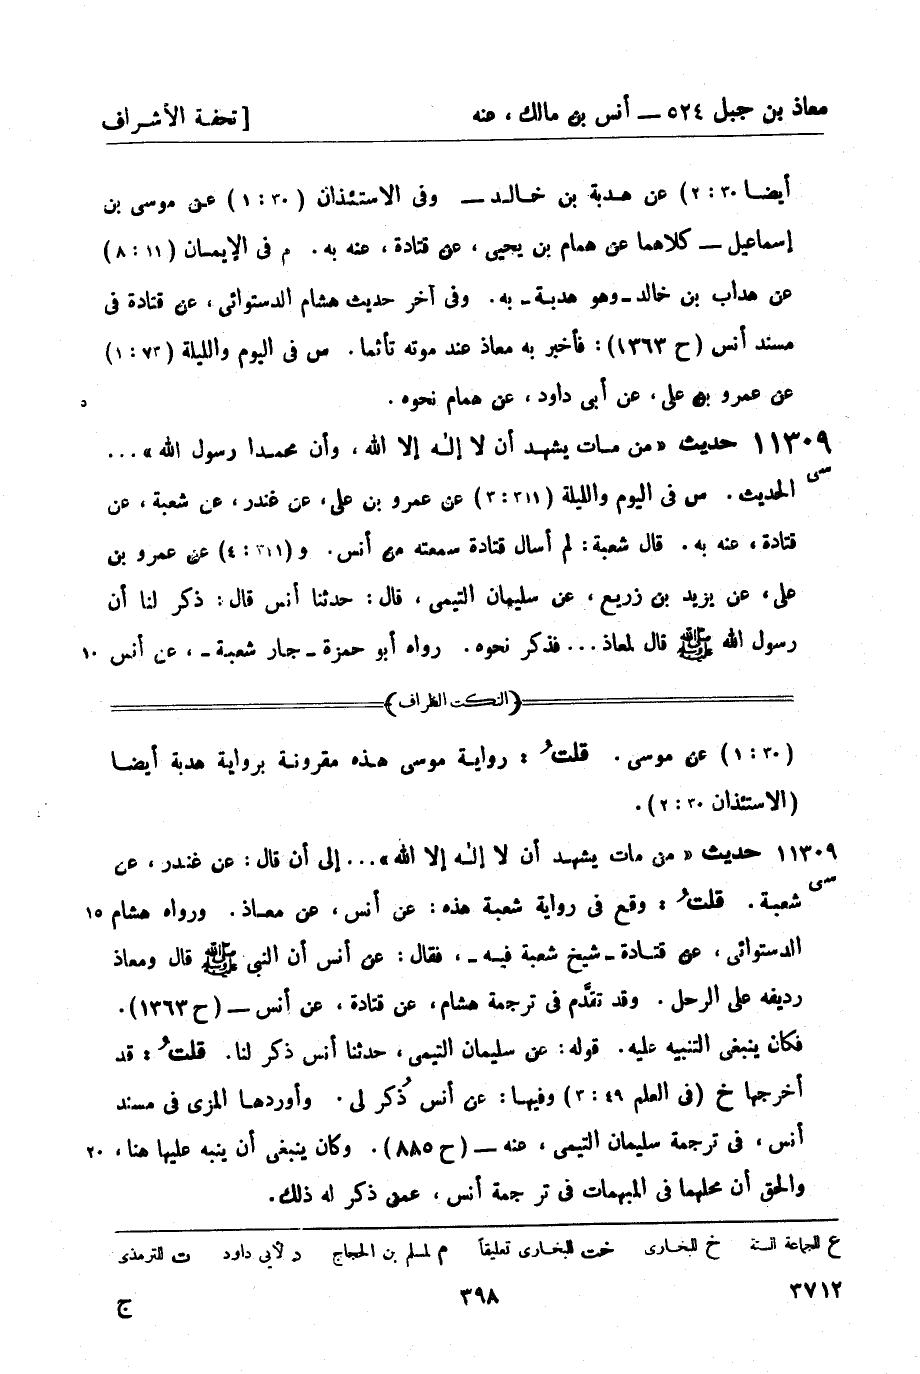 معاذ بن جبل ٥٢٤ — أنس بن مالك ، عنه [ تحفة الأشراف
أيضا ٣٠ : ٢) عن هدبة بن خالد — وفى الاستئذان ( ٣٠ : ١ ) عن موسى بن
إسماعيل — كلاهما عن همام بن يحيى ، عن قتادة ، عنه به . م فى الإيمان ( ١١ : ٨ )
عن هداب بن خالد ـ وهو هدبة ـ به . وفى آخر حديث هشام الدستوائى ، عن قتادة فى
مسند أنس (ح ١٣٦٣) : فأخبر به معاذ عند موته تأثما . س فى اليوم والليلة ( ٧٣ : ١ )
عن عمرو بن على ، عن أبى داود ، عن همام نحوه .
١١٣٠٩ حديث « من مات يشهد أن لا إله إلا الله ، وأن محمدا رسول الله » ...
سى الحديث . س فى اليوم والليلة ( ٣١١ : ٣ ) عن عمرو بن على ، عن غندر ، عن شعبة ، عن
قتادة ، عنه به . قال شعبة : لم أسال قتادة سمعته من أنس . و ( ٣١١ : ٤ ) عن عمرو بن
على ، عن يزيد بن زريع ، عن سليمان التيمى ، قال : حدثنا أنس قال : ذكر لنا أن
رسول الله ﷺ قال لمعاذ ... فذكر نحوه . رواه أبو حمزة ـ جار شعبة ـ ، عن أنس ١٠
(النكت الظراف)
( ٣٠ : ١ ) عن موسى . قلتُ : رواية موسى هذه مقرونة برواية هدبة أيضا
(الاستئذان ٣٠ : ٢) .
١١٣٠٩ حديث « من مات يشهد أن لا إله إلا الله » ... إلى أن قال : عن غندر ، عن
سى شعبة . قلتُ : وقع فى رواية شعبة هذه : عن أنس ، عن معاذ . ورواه هشام ١٥
الدستوائى ، عن قتادة ـ شيخ شعبة فيه ـ ، فقال : عن أنس أن النبى ﷺ قال ومعاذ
رديفه على الرحل . وقد تقدَّم فى ترجمة هشام ، عن قتادة ، عن أنس — (ح ١٣٦٣) .
فكان ينبغى التنبيه عليه . قوله : عن سليمان التيمى ، حدثنا أنس ذكر لنا . قلتُ : قد
أخرجها خ (فى العلم ٤٩ : ٣) وفيها : عن أنس ذُكر لى . وأوردها المزى فى مسند
أنس ، فى ترجمة سليمان التيمى ، عنه — (ح ٨٨٥) . وكان ينبغى أن ينبه عليها هنا ، ٢٠
والحق أن محلهما فى المبهمات فى تر جمة أنس ، عمن ذكر له ذلك .
ع للجماعة الستة خ للبخارى خت للبخارى تعليقاً م لمسلم بن الحجاج د لأبى داود ت للترمذى
٣٧١٢ ٣٩٨ ج